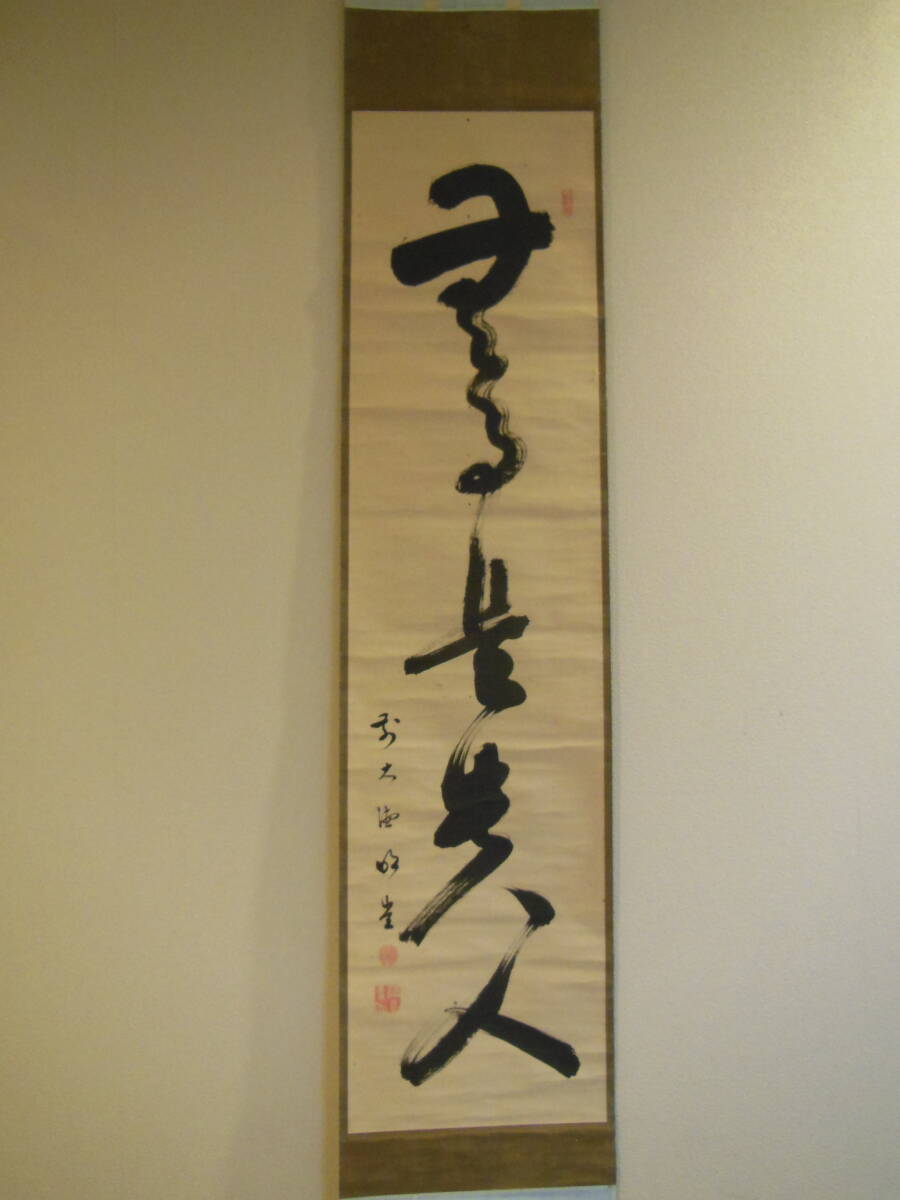 無事是貴人
前大徳明堂